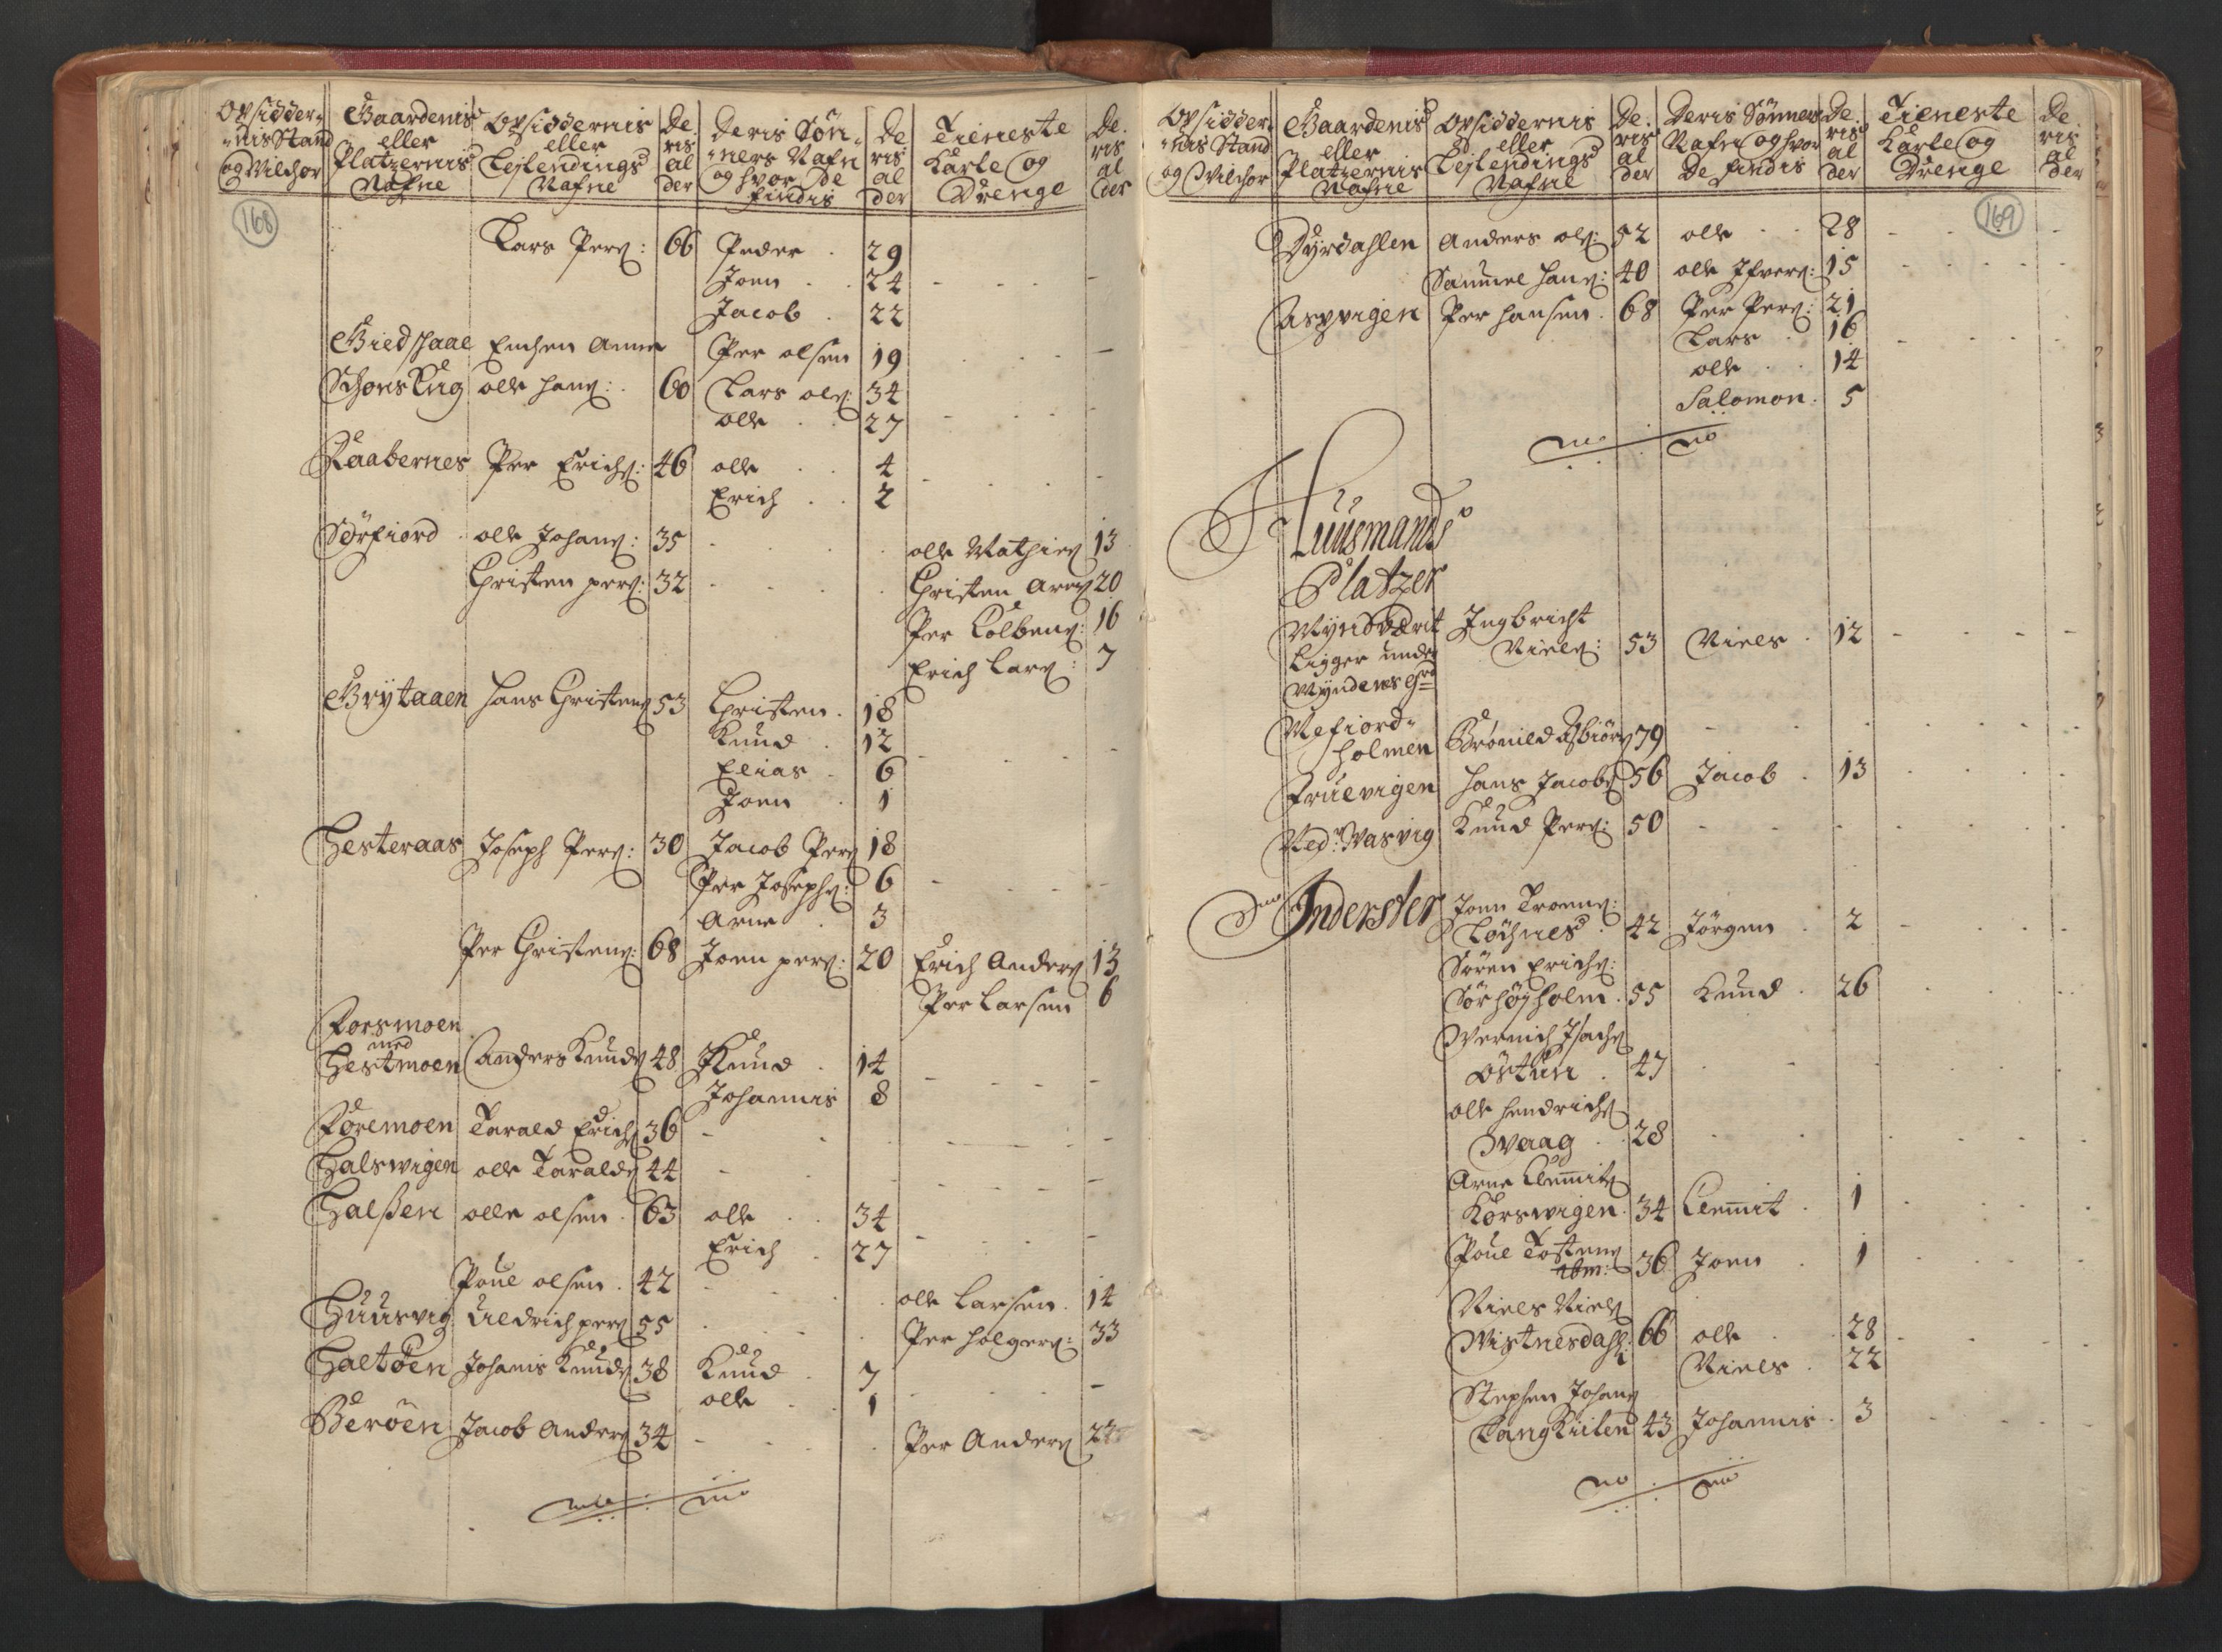 Opsidder-
nis Stand
og Vilchor
Gaardenis
eller
Platzernis
Nafne
Opsiddernis
eller
Lejlendings
Nafne
De
ris
al
der
Deris Søn-
ners Nafn
og hvor De
findis
De
ris
al
der
Tieneste
Karle og
Drenge
De.
ris
al
der
168
Lars Pers: 66 Peder 29
Joen 24
Jacob 22
Giedskaal Enchen Anne Per olsen 19
Schons olle Hans: 60 Lars ols: 34
olle 27
Raabernes Per Erichs: 46 olle 4
Erich 2
Sörfiord olle Johans: 35 olle Mathies 13
Christen pers: 32 Christen Ares 20
Per Colbens: 16
Erich Lars: 7
Grytaaen Hans Christens 53 Christen 18
Knud 12
Elias 6
Joen 1
Hesteraas Joseph Pers: 30 Jacob Pers 18
Per Josephs: 6
Arne 3
Per Christens: 68 Joen pers: 20 Erich Anders 13
Per Larsen 6
Forsmoen
med
Hestmoen Anders Knuds 48 Knud 14
Johannis 8
Föremoen Tarald Erichs 36
Halswigen olle Taralds 44
Halßen olle olsen 63 olle 34
Erich 27
Poul olsen 42 olle Larsen 14
Huusvig Uldrich pers 55 Per Holgers: 33
Haltöen Johanis Knuds 38 Knud 7
olle 1
Beröen Jacob Anders 34 Per Anders
Opsidder-
nis Stand
og Vilchor
Gaardenis
eller
Platzernis
Nafne
Opsiddernis
eller
Lejlendings
Nafne
De.
ris
al
der
Deris Sönners
Nafn og hvor
De findis
De.
ris
al
der
Tieneste
Karle og
Drenge
De.
ris
al
der
169
Dyrdahlen Anders ols: 52 olle 28
Sammel Hans: 40 olle Ifvers: 15
Aspvigen Per Hansen 68 Per Pers: 21
Lars 16
olle 14
Salomon 5
Huusmands
Platzer
Myndværit Ingbricht
Ligger under Niels: 53 Niels 12
Myndenes
Vefiord-
holmen Bronild Asbiörs 79
Fruevigen Hans Jacobs 56 Jacob 13
Ved Wasvig Knud Pers: 50
Inderster Joen Troens:
Löchnes 42 Jörgen 2
Sören Erichs:
Sörhöyholm 55 Knud 26
Wernich Isachs
Östuen 47
olle Hendrichs
Waag 28
Arne Clemits
Korswigen 34 Clemit 1
Poul Tostens
ibm: 36 Joen 1
Niels Niels
Wistnesdahl: 66 olle 28
Niels 22
Stephen Johans
43 Johannis 3